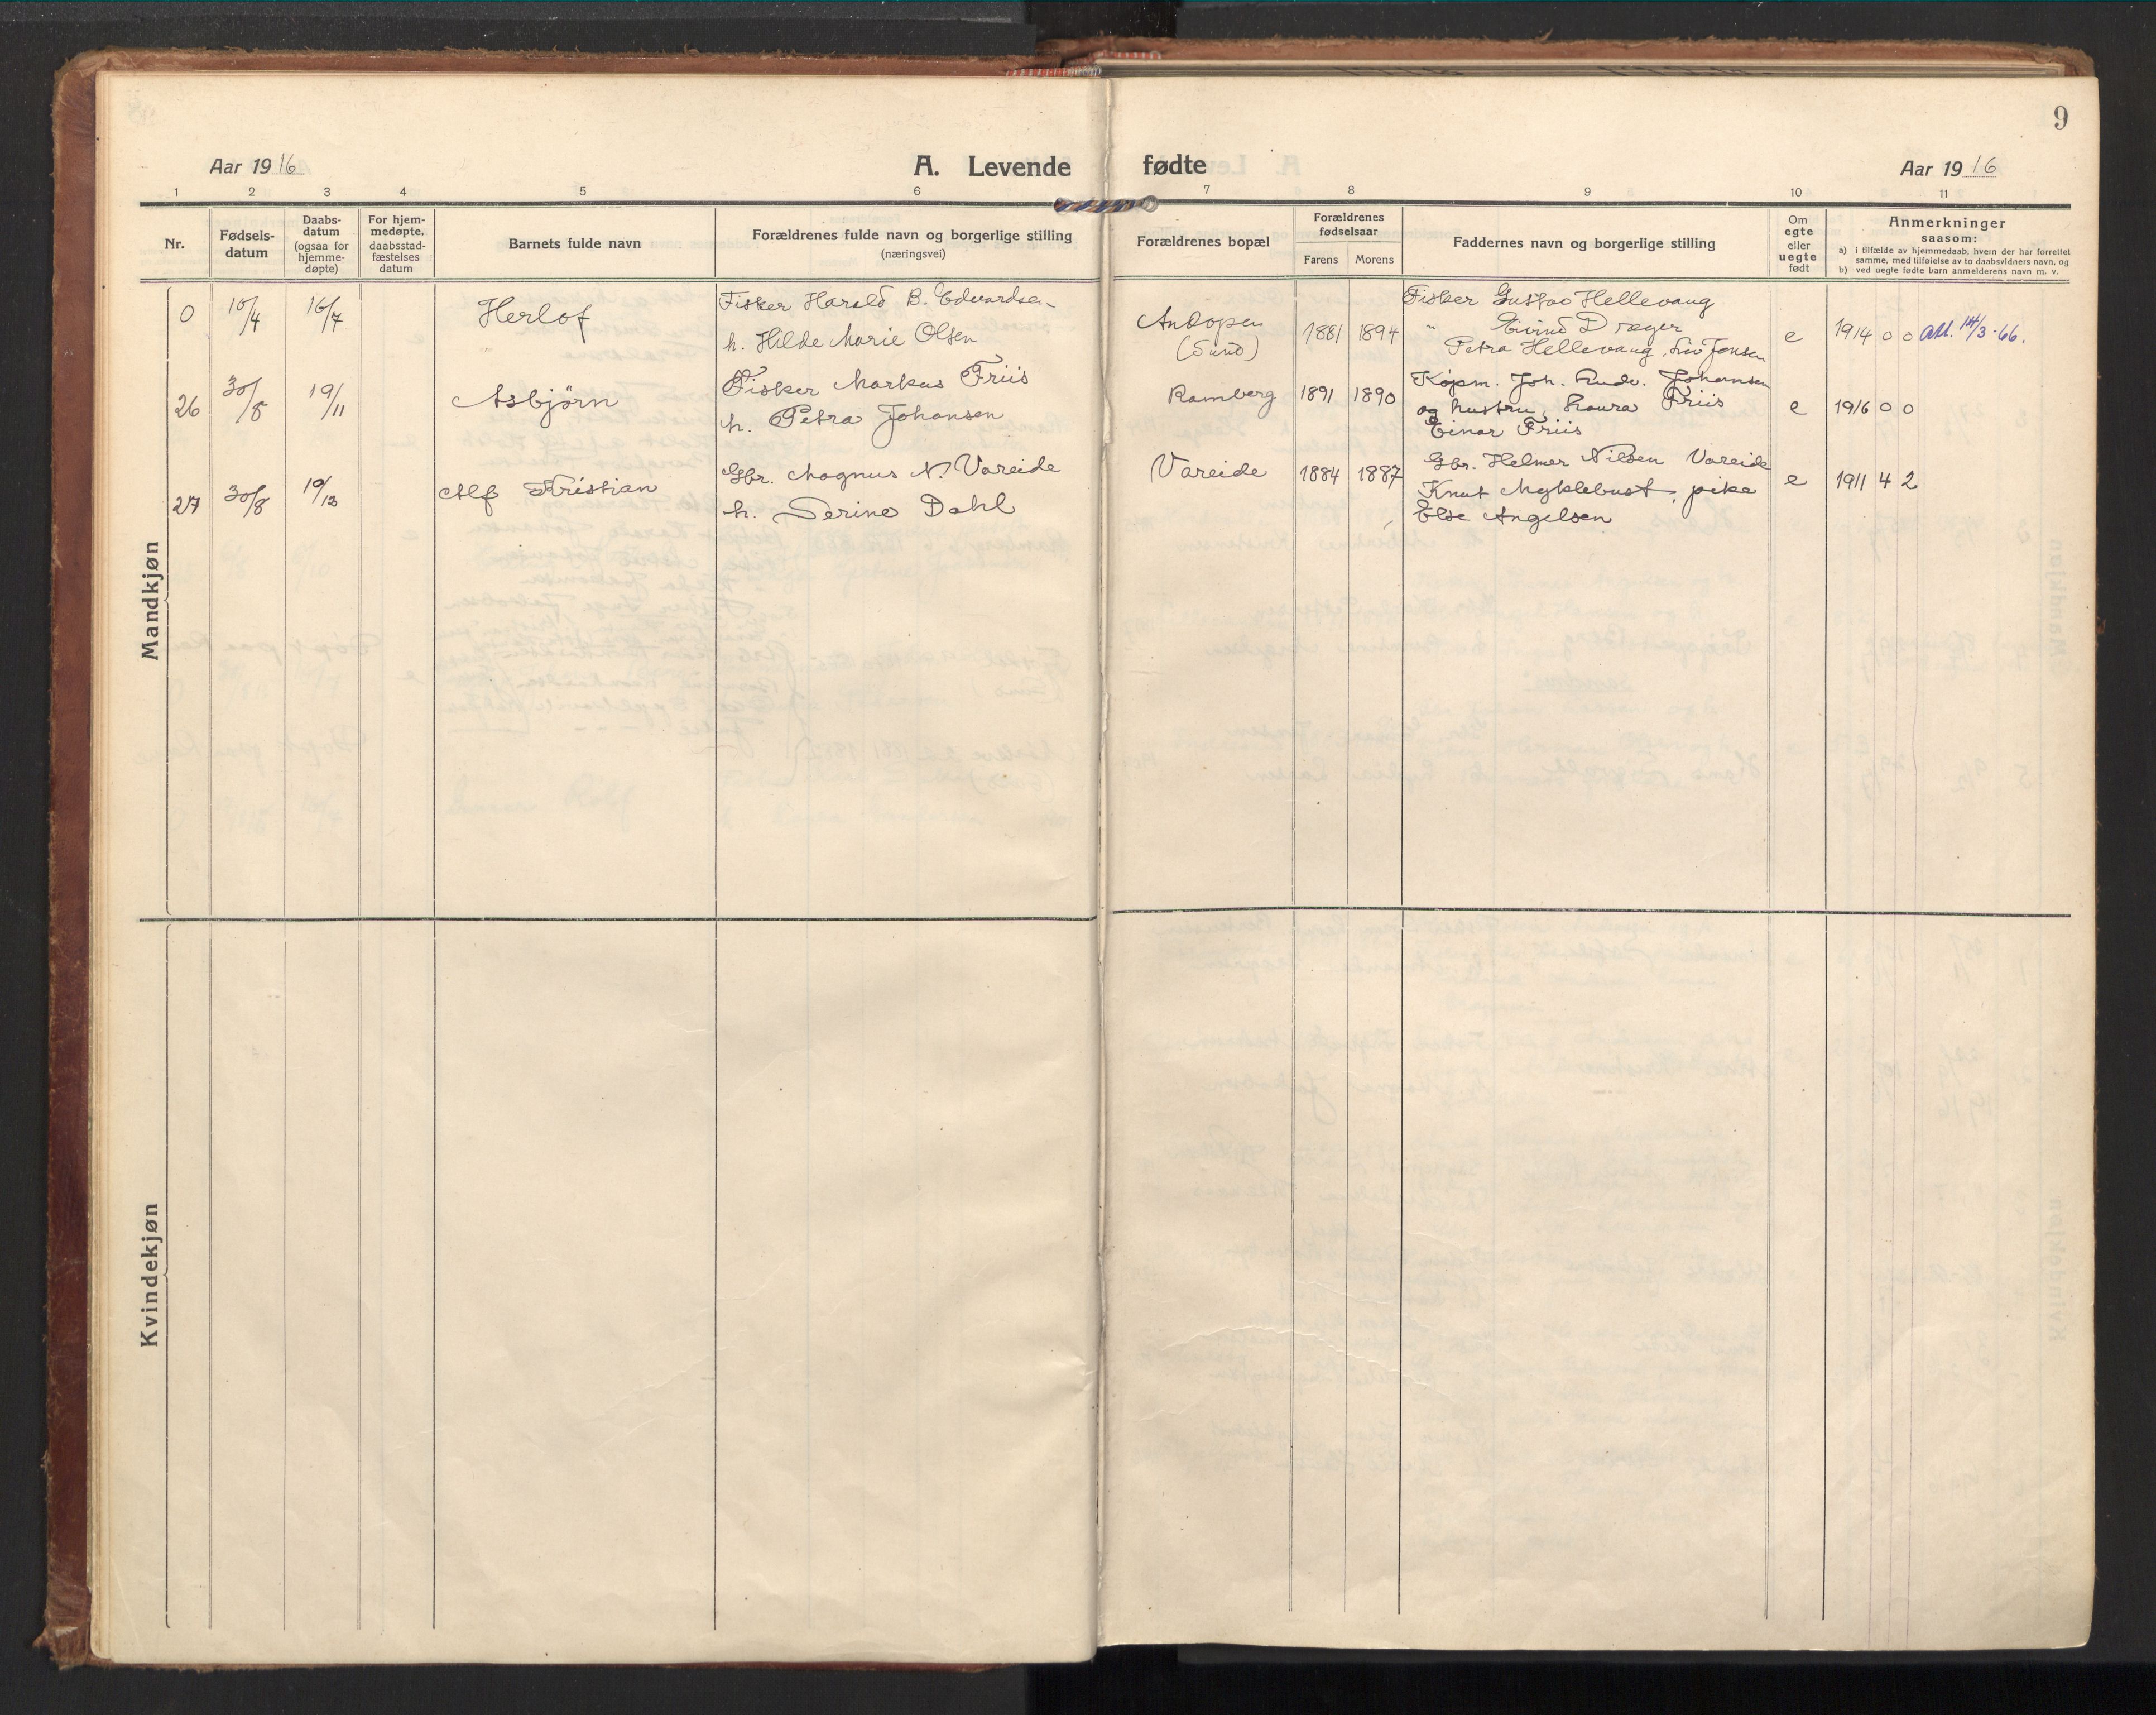 9
Aar 1916
A. Levende fødte
Aar 1916
1 2 3 4 5 6 7 8 9 10 11
Nr.
Fødsels-
datum
Daabs-
datum
(ogsaa for
hjemme-
døpte)
For hjem-
medøpte,
daabsstad-
fæstelses
datum
Barnets fulde navn
Forældrenes fulde navn og borgerlige stilling
(næringsvei)
Forældrenes bopæl
Forældrenes
fødselsaar
Farens Morens
Faddernes navn og borgerlige stilling
Om
egte
eller
uegte
født
Anmerkninger
saasom:
a) i tilfælde av hjemmedaab, hvem der har forrettet
samme, med tilføielse av to daabsvidners navn, og
b) ved uegte fødte barn anmelderens navn m. v.
Mandkjøn
0 10/4 16/7 Herlof
Fisker Harald B. Edvardsen
h. Hilde Marie Olsen
Andopen
(Sund)
1881 1894
Fisker Gustav Hellevang
" Eivind Dræger
Petra Hellevang, Liv Jensen
e 1914 0 0 att. 14/3-66.
26 30/8 19/11 Asbjørn
Fisker Markus Friis
h. Petra Johansen
Ramberg 1891 1890
Kjøpm. Joh. Rudv. Johansen
og hustru, Laura Friis
Einar Friis
e 1916 0 0
27 30/8 19/12 Alf Kristian
Gbr. Magnus N. Vareide
h. Serine Dahl
Vareide 1884 1887
Gbr. Helmer Nilsen Vareide
Knut Myklebust, pike
Else Angelsen
e 1911 4 2
Kvindekjøn